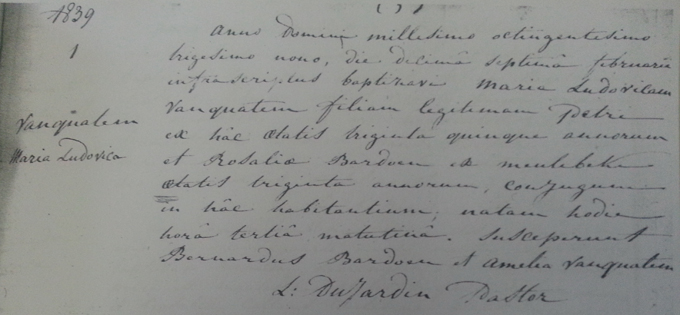 1839
1
Vanquatem
Maria Ludovica
Anno Domini millesimo octingentesimo
trigesimo nono, die decimâ septimâ februarii
infrascriptus baptizavi Maria Ludovicam
Vanquatem filiam legitimam Petri
ex hâc Ætatis triginta quinque annorum
et Rosaliæ Bardoen ex meulebeke
Ætatis triginta annorum, conjugum
in hâc habitantium; natam hodie
horâ tertiâ matutinâ. Susceperunt
Bernardus Bardoen et Amelia Vanquatem
L: DuJardin Pastor